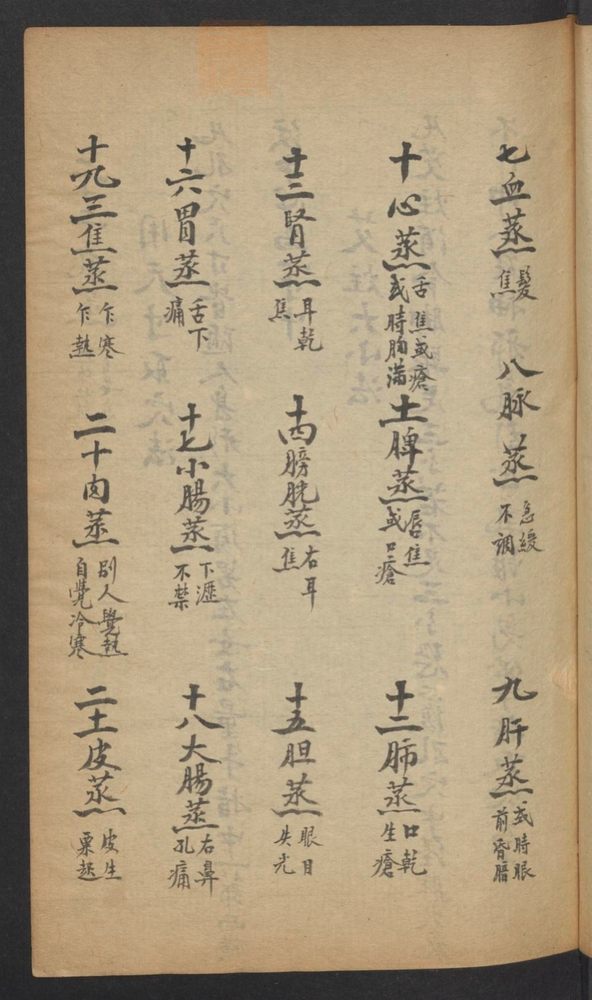 七血蒸 髮焦 八脉蒸 急緩不調 九肝蒸 或時眼前昏暗
十心蒸 舌焦或瘡或時胸滿 十一脾蒸 唇焦或口瘡 十二肺蒸 口乾生瘡
十三腎蒸 耳乾焦 十四膀胱蒸 右耳焦 十五胆蒸 眼目失光
十六胃蒸 舌下痛 十七小腸蒸 下瀝不禁 十八大腸蒸 右鼻孔痛
十九三焦蒸 乍寒乍熱 二十肉蒸 別人覺熱自覺冷寒 二十一皮蒸 皮生粟起